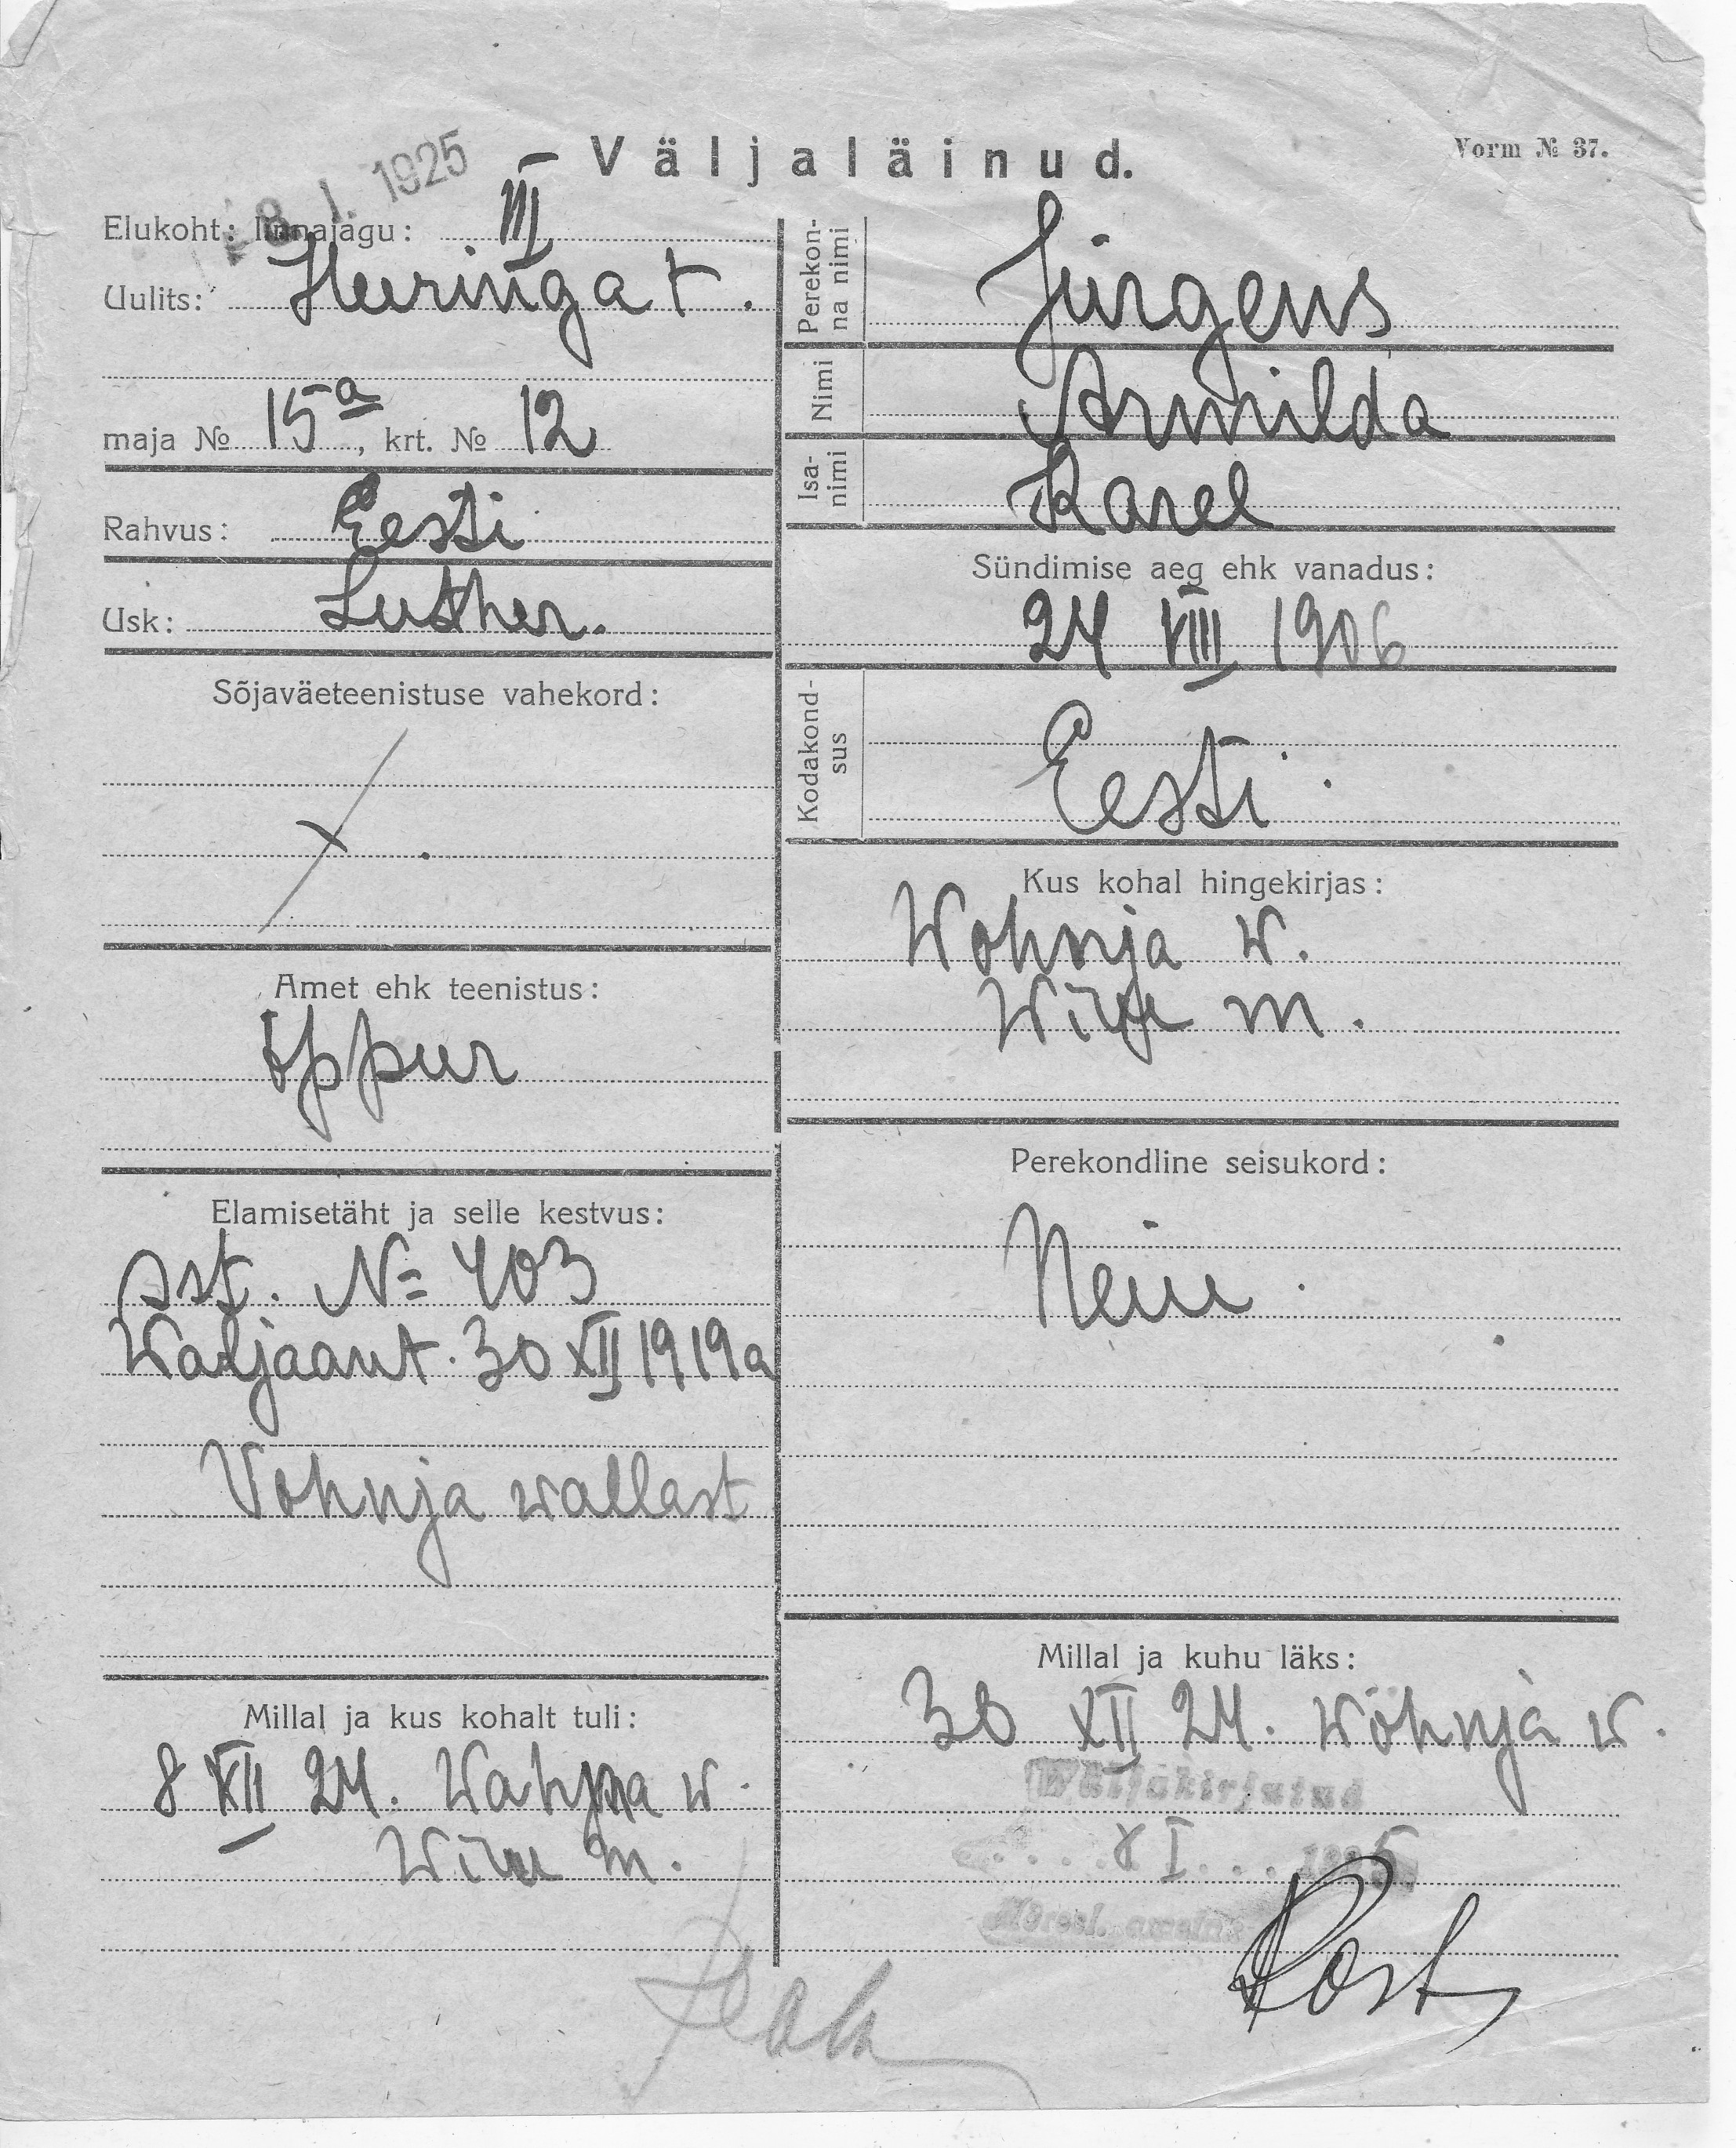 Väljaläinud.
Vorm № 37.
8. I. 1925
Elukoht: linnajagu: III
Uulits: Heeringa t.
maja № 15a, krt. № 12
Rahvus: Eesti
Usk: Luther.
Sõjaväeteenistuse vahekord:
Amet ehk teenistus:
õppur
Elamisetäht ja selle kestvus:
№ 403
Waljaant. 30 XII 1919a
Vohnja wallast
Millal ja kus kohalt tuli:
8 XII 24. w.
Wiru m.
Perekonna nimi
Jürgens
Nimi
Armilda
Isanimi
Karel
Sündimise aeg ehk vanadus:
24 VIII 1906
Kodakondsus
Eesti.
Kus kohal hingekirjas:
Wohnja w.
Wiru m.
Perekondline seisukord:
Neiu.
Millal ja kuhu läks:
30 XII 24. Wöhnja w.
Wäljakirjutud
8 I 1925
Post